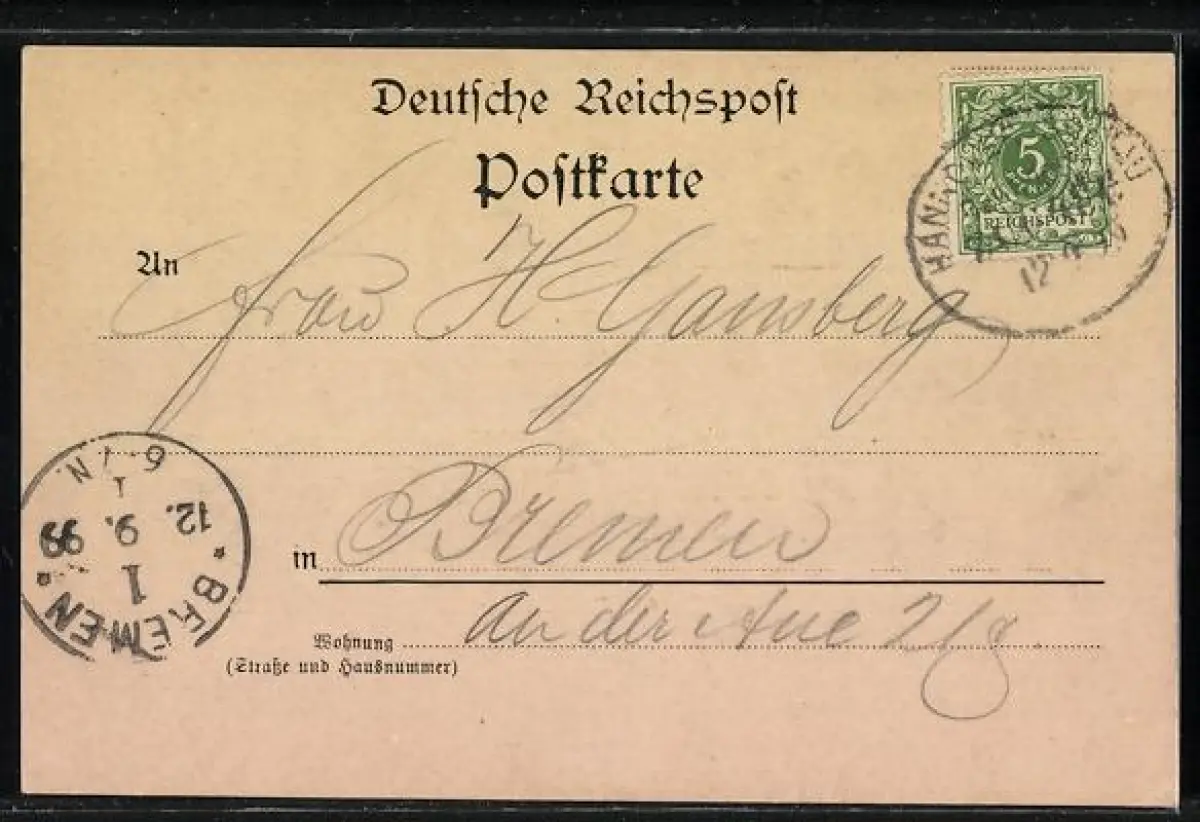 Deutsche Reichspost
Postkarte
5
REICHSPOST
12.9.
An
Frau H. Gansberg
in Bremen
Wohnung an der Aue 2/8.
(Straße und Hausnummer)
* BREMEN *
1
12. 9. 99
6-7N.